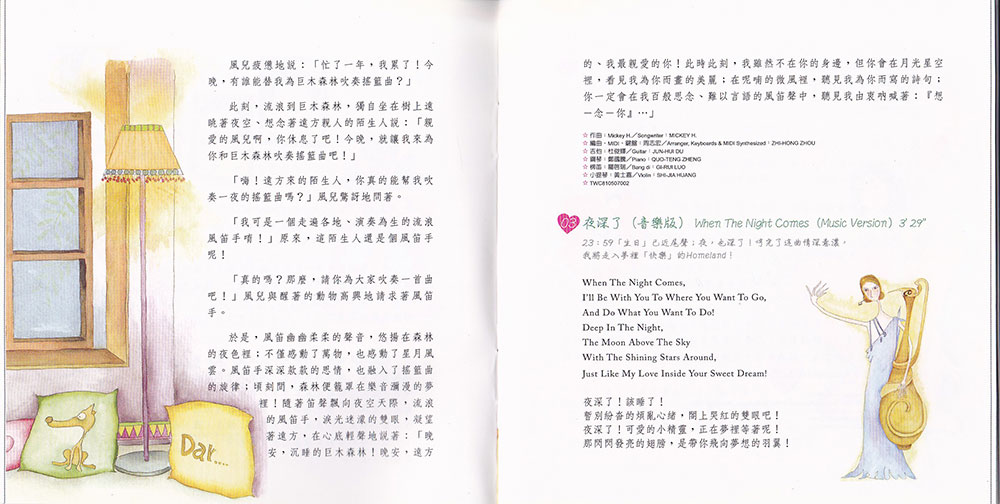 風兒疲憊地說：「忙了一年，我累了！今
晚，有誰能替我為巨木森林吹奏搖籃曲？」
此刻，流浪到巨木森林，獨自坐在樹上遠
眺著夜空、想念著遠方親人的陌生人說：「親
愛的風兒啊，你休息了吧！今晚，就讓我來為
你和巨木森林吹奏搖籃曲吧！」
「嗨！遠方來的陌生人，你真的能幫我吹
奏一夜的搖籃曲嗎？」風兒驚訝地問著。
「我可是一個走遍各地、演奏為生的流浪
風笛手唷！」原來，這陌生人還是個風笛手
呢！
「真的嗎？那麼，請你為大家吹奏一首曲
吧！」風兒與醒著的動物高興地請求著風笛
手。
於是，風笛幽幽柔柔的聲音，悠揚在森林
的夜色裡；不僅感動了萬物，也感動了星月風
雲。風笛手深深款款的思情，也融入了搖籃曲
的旋律；頃刻間，森林便籠罩在樂音瀰漫的夢
裡！隨著笛聲飄向夜空天際，流浪
的風笛手，淚光迷濛的雙眼，凝望
著遠方，在心底輕聲地說著：「晚
安，沉睡的巨木森林！晚安，遠方
Dar....
的、我最親愛的你！此時此刻，我雖然不在你的身邊，但你會在月光星空
裡，看見我為你而畫的美麗；在呢喃的微風裡，聽見我為你而寫的詩句；
你一定會在我百般思念、難以言語的風笛聲中，聽見我由衷吶喊著：『想
－念－你』…」
☆ 作曲：Mickey H.／Songwriter：MICKEY H.
☆ 編曲、MIDI、鍵盤：周志宏／Arranger, Keyboards & MIDI Synthesized：ZHI-HONG ZHOU
☆ 吉他：杜俊輝／Guitar：JUN-HUI DU
☆ 鋼琴：鄭國騰／Piano：QUO-TENG ZHENG
☆ 梆笛：羅啟瑞／Bang di：GI-RUI LUO
☆ 小提琴：黃士嘉／Violin：SHI-JIA HUANG
☆ TWC810507002
03 夜深了（音樂版） When The Night Comes（Music Version）3' 29"
23：59「生日」已近尾聲；夜，也深了！哼完了這曲情深意濃，
我將走入夢裡「快樂」的Homeland！
When The Night Comes,
I'll Be With You To Where You Want To Go,
And Do What You Want To Do!
Deep In The Night,
The Moon Above The Sky
With The Shining Stars Around,
Just Like My Love Inside Your Sweet Dream!
夜深了！該睡了！
暫別紛沓的煩亂心緒，閤上哭紅的雙眼吧！
夜深了！可愛的小精靈，正在夢裡等著呢！
那閃閃發亮的翅膀，是帶你飛向夢想的羽翼！